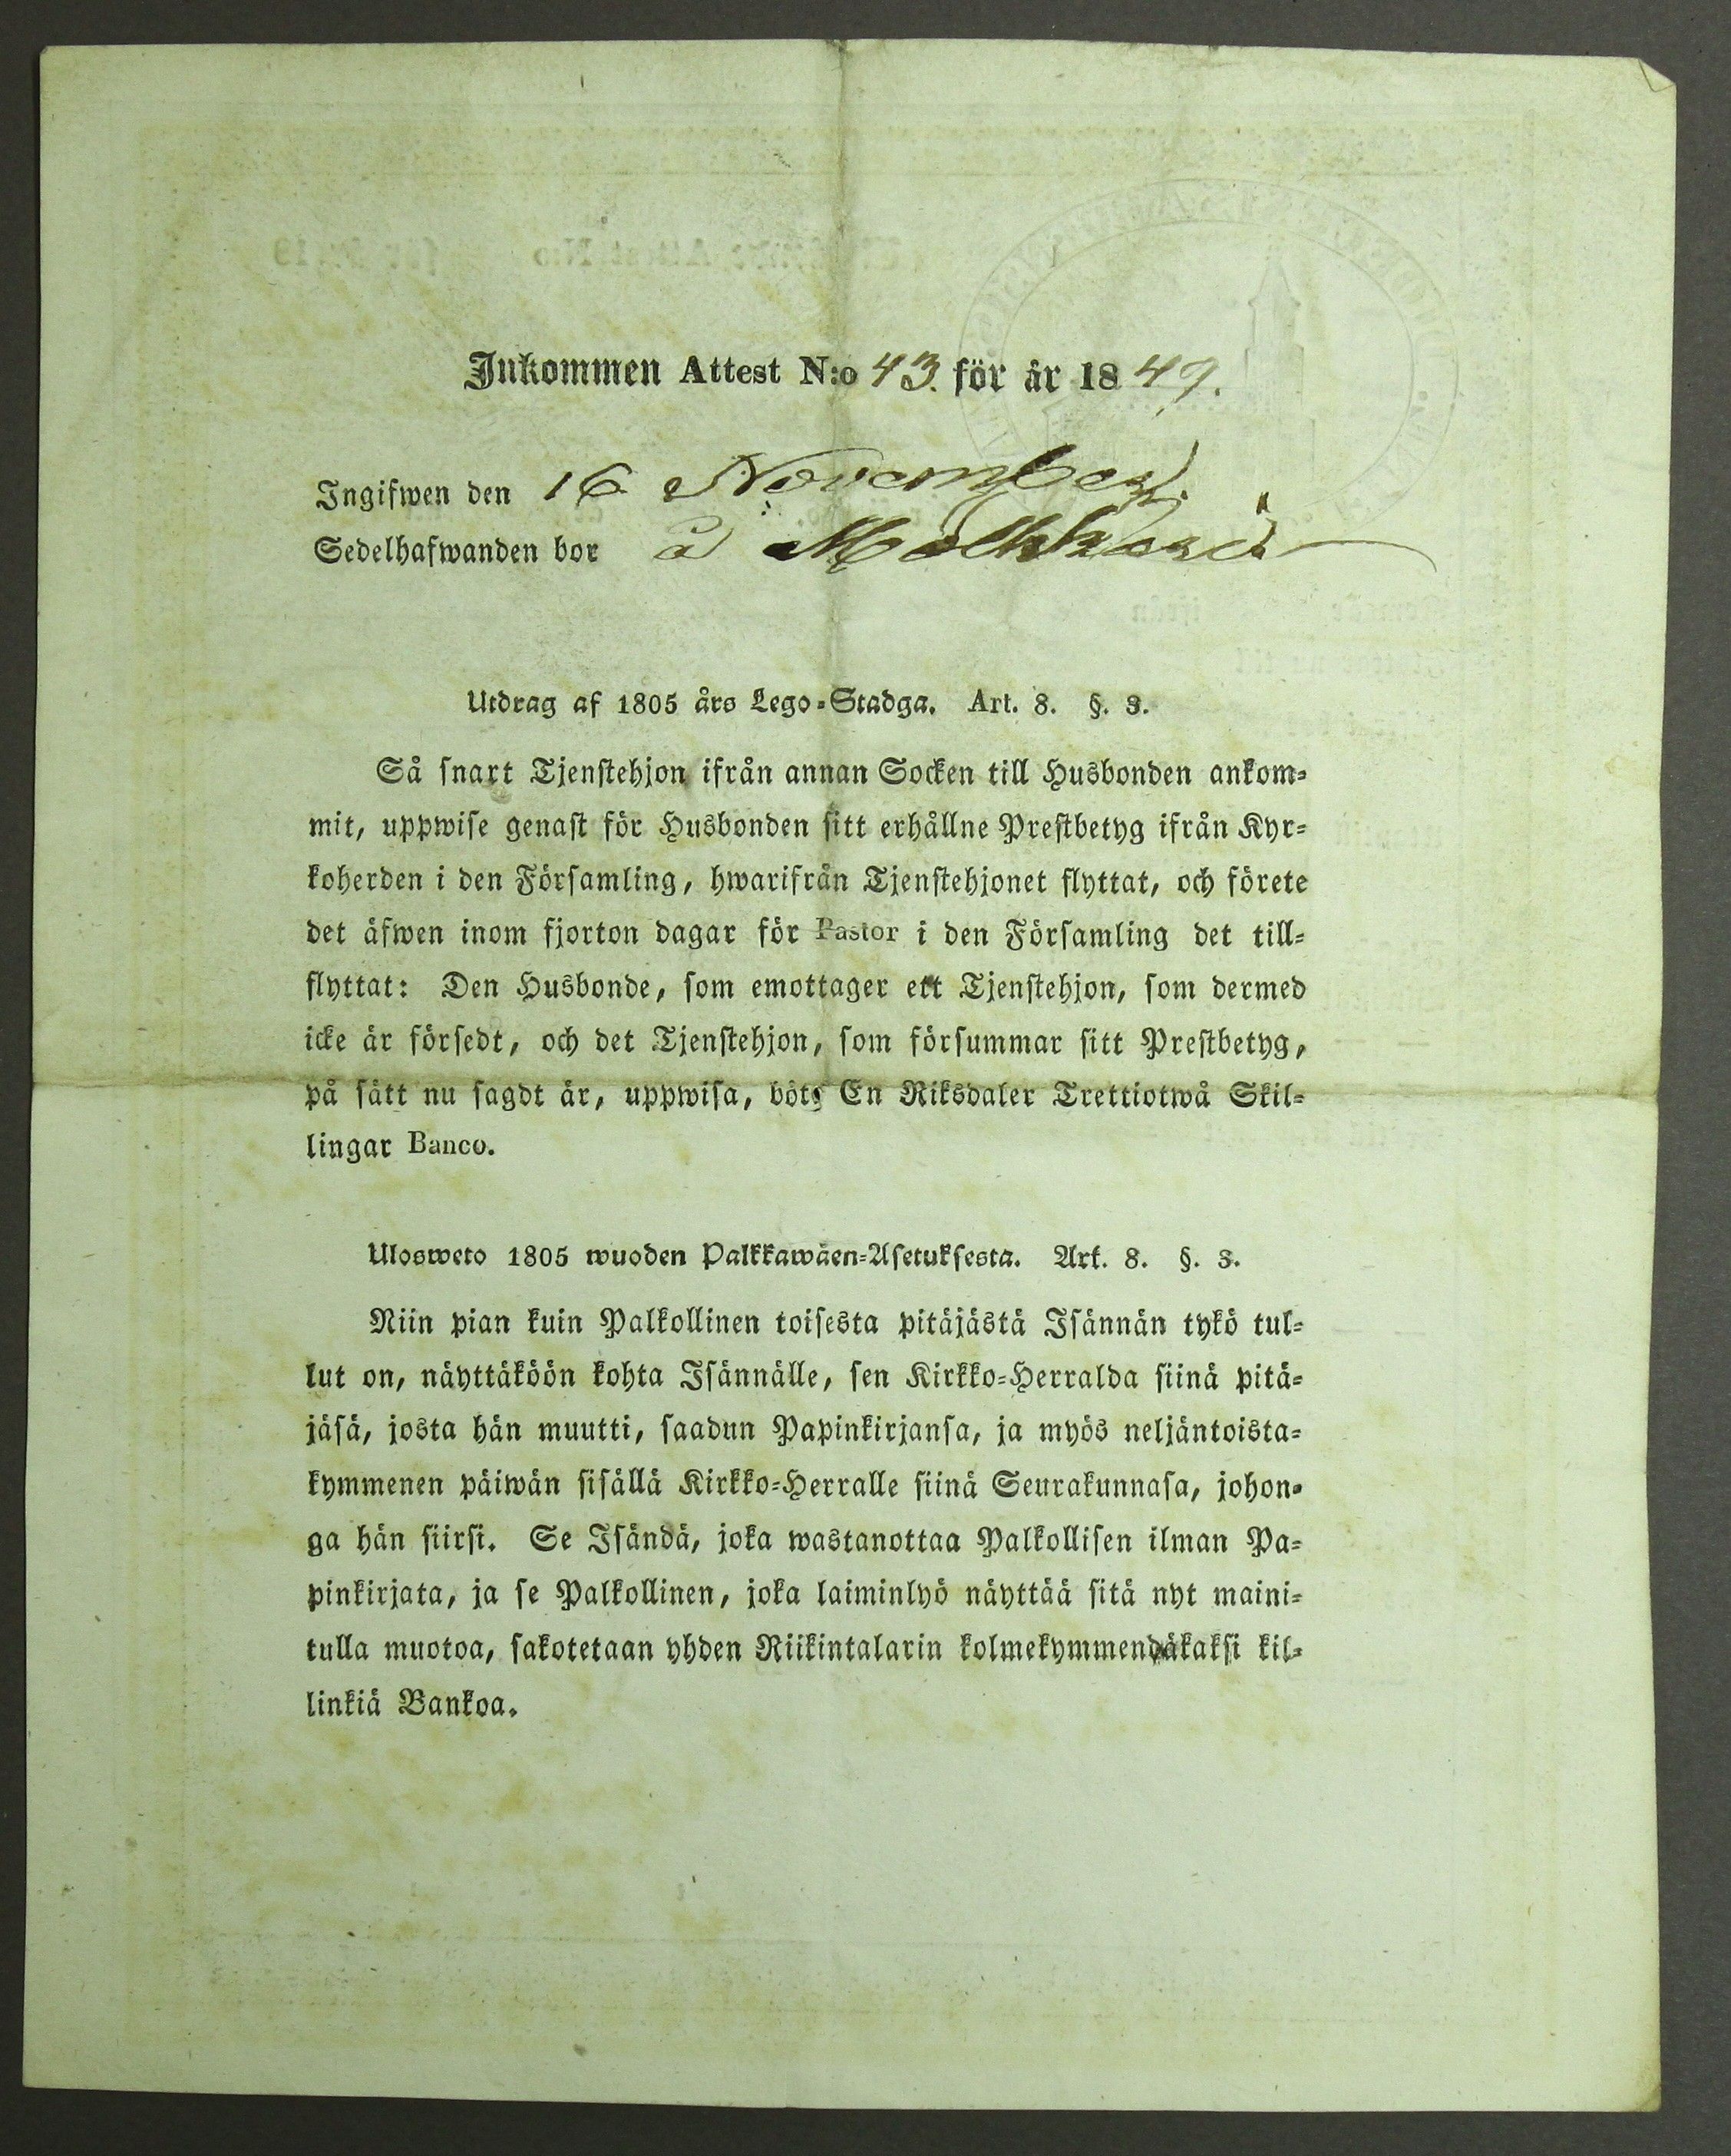 Inkommen Attest N:o 43. för år 1849.
Ingifwen den 16 November
Sedelhafwanden bor å
Utdrag af 1805 års Lego-Stadga. Art. 8. §. 3.
Så snart Tjenstehjon ifrån annan Socken till Husbonden ankom-
mit, uppwise genast för Husbonden sitt erhållne Prestbetyg ifrån Kyr-
koherden i den Församling, hwarifrån Tjenstehjonet flyttat, och förete
det äfwen inom fjorton dagar för Pastor i den Församling det till-
flyttat: Den Husbonde, som emottager ett Tjenstehjon, som dermed
icke är försedt, och det Tjenstehjon, som försummar sitt Prestbetyg,
på sätt nu sagdt är, uppwisa, böte En Riksdaler Trettiotwå Skil-
lingar Banco.
Ulosweto 1805 wuoden Palkkawäen-Asetuksesta. Art. 8. §. 3.
Niin pian kuin Palkollinen toisesta pitäjästä Isännän tykö tul-
lut on, näyttäköön kohta Isännälle, sen Kirkko-Herralda siinä pitä-
jäsä, josta hän muutti, saadun Papinkirjansa, ja myös neljäntoista-
kymmenen päiwän sisällä Kirkko-Herralle siinä Seurakunnasa, johon-
ga hän siirsi. Se Isändä, joka wastanottaa Palkollisen ilman Pa-
pinkirjata, ja se Palkollinen, joka laiminlyö näyttää sitä nyt maini-
tulla muotoa, sakotetaan yhden Riikintalarin kolmekymmendäkaksi kil-
linkiä Bankoa.